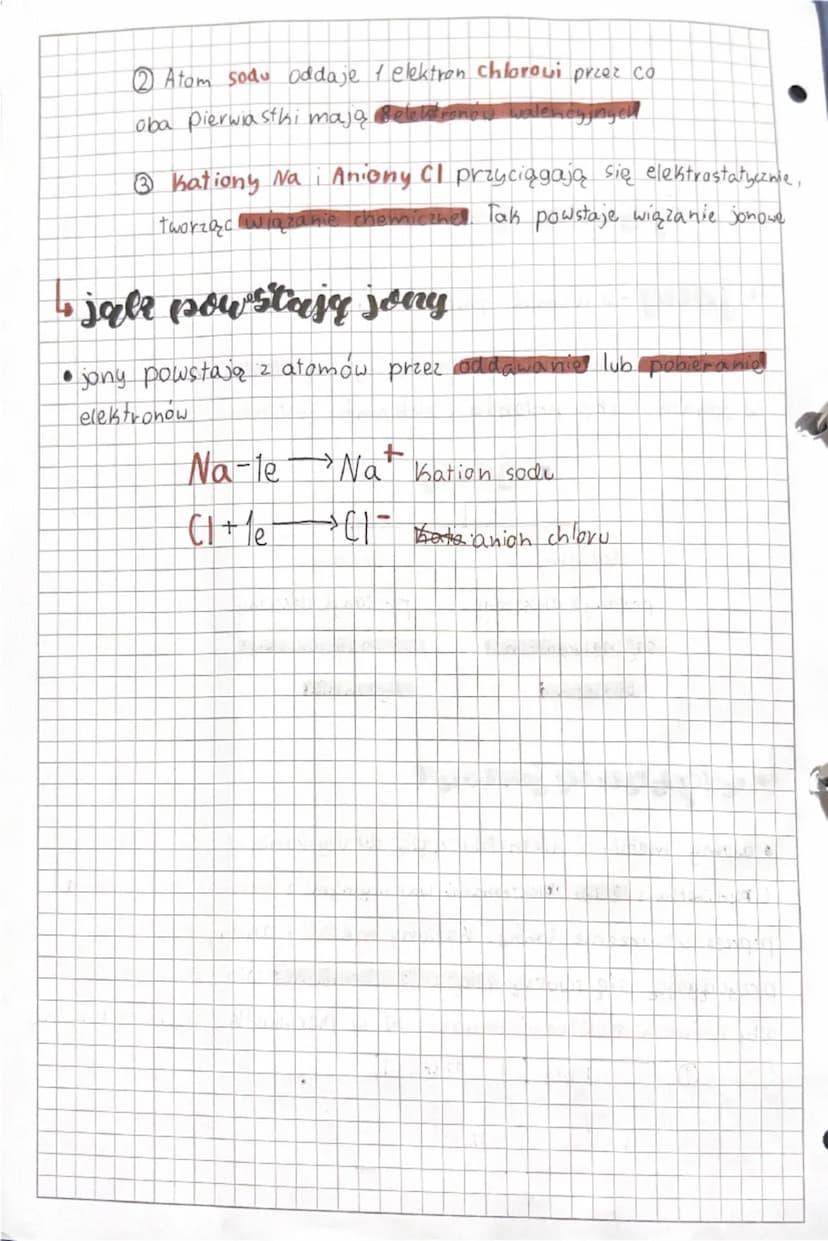 ② Atom sodu oddaje 1 elektron chlorowi przez co
oba pierwiastki mają 8 elektronów walencyjnych
③ Kationy Na i Aniony Cl przyciągają się elektrostatycznie,
tworząc wiązanie chemiczne. Tak powstaje wiązanie jonowe
↳ jak powstają jony
• jony powstają z atomów przez oddawanie lub pobieranie
elektronów
Na-1e → Na⁺ Kation sodu
Cl+1e → Cl⁻ anion chloru